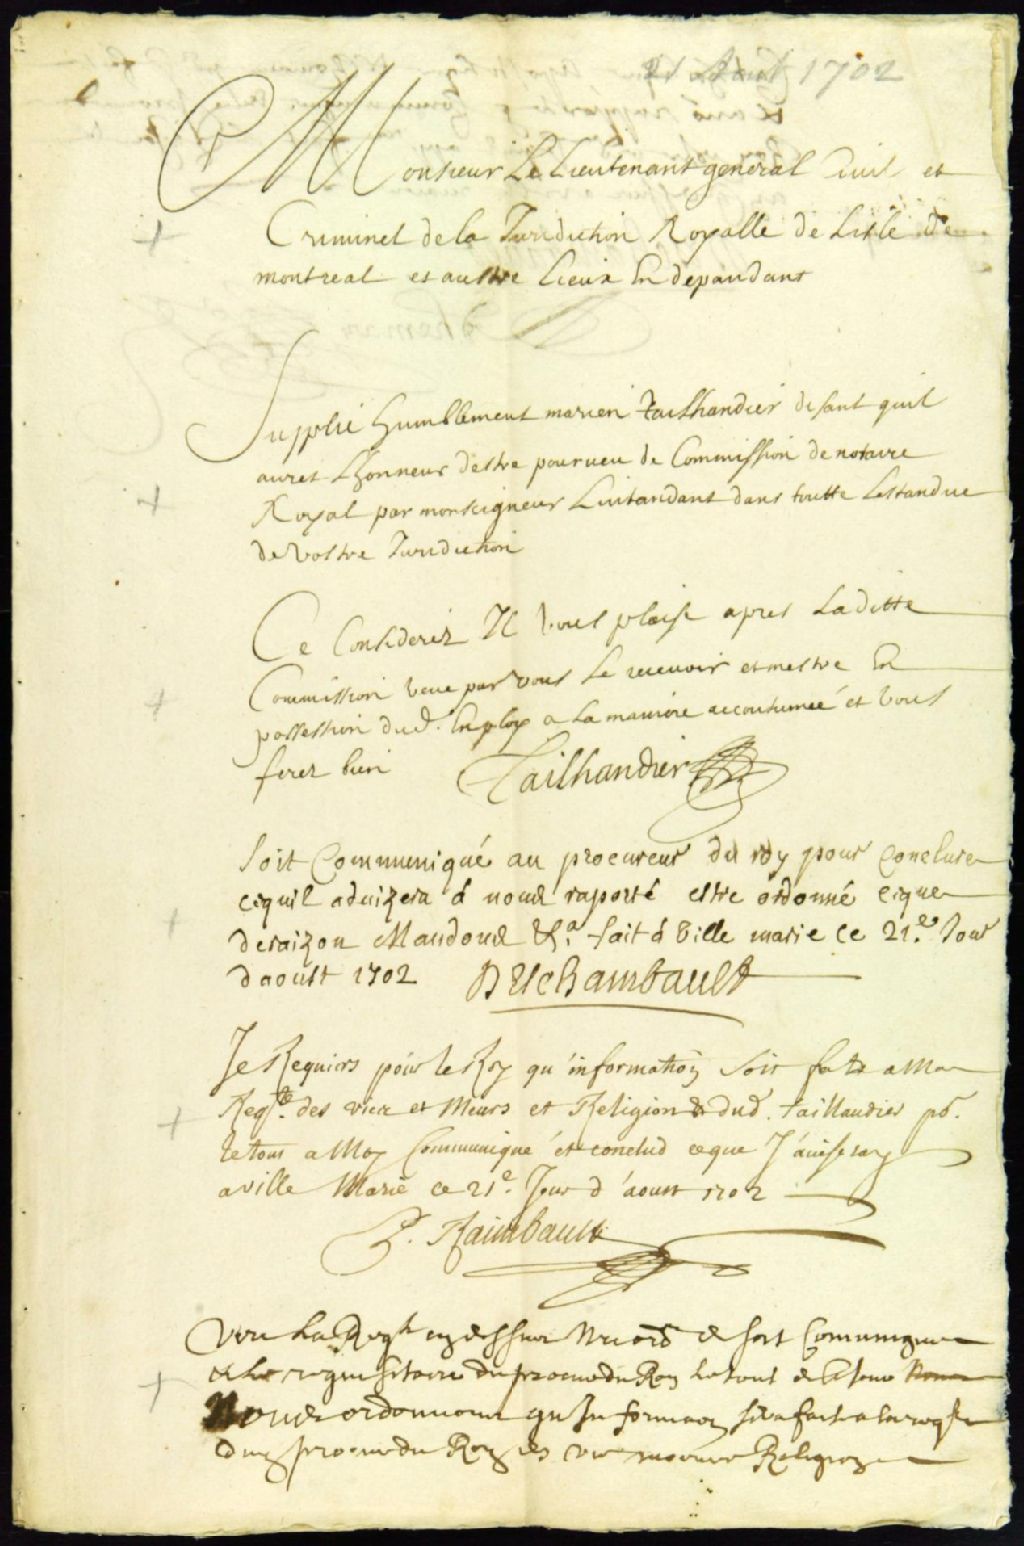 21 Aout 1702
Monsieur Le Lieutenant general Civil et
Criminel de la Juridiction Royalle de Lisle de
montreal et austre Lieux En dependant
Suplie humblement marien tailhandier disant quil
auret Lhonneur destre pourueu de Commission de notaire
Royal par monseigneur Lintandant dans toutte Lestandue
de vostre Juridiction
Ce Considerez Il vous plaise apres Laditte
Commission veue par vous Le recevoir et mestre En
possession dud. Employ a La maniere accoutumeé et vous
ferez bien Tailhandier
Soit Communiqué au procureur du roy pour Conclure
cequil aduizera á nous raporté estre ordonné ceque
deraizon Mandons &c.a fait á Ville marie ce 21.e Jour
daoust 1702 Deschambault
Je Requiers pour le Roy qu'information soit faite a Ma
Reqte. des vies et Meurs et Religion dud. taillandier po.
le tout a Moy Communiqué et conclud ceque J'auiseray
a ville Marie ce 21e. Jour d'aoust 1702
P. Raimbault
Veu La Reqte cy dessus Nre ord de soit Communique
et Le requisitoire du procureur du Roy Le tout
Nous ordonnons qu Information sera faite a la reqte
du procureur du Roy des vie moeurs Religion